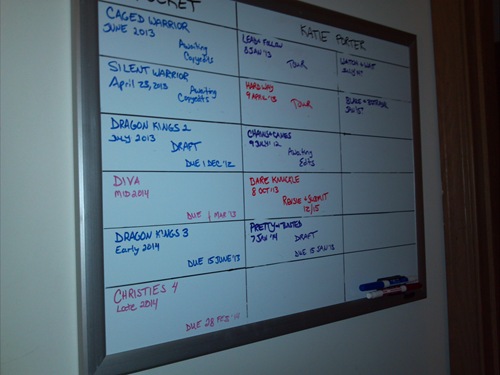 KATIE PORTER
CAGED WARRIOR
JUNE 2013
Awaiting
Copyedits
LEAD & FOLLOW
8 JAN '13
TOUR
WATCH & WAIT
SILENT WARRIOR
April 23, 2013
Awaiting
Copyedits
HARD WAY
9 APRIL '13
TOUR
DRAGON KINGS 2
JULY 2013
DRAFT
DUE 1 DEC '12
9 JULY '12
Awaiting
Edits
DIVA
MID 2014
DUE 1 MAR '13
BARE KNUCKLE
8 OCT '13
REVISE & SUBMIT
12/15
DRAGON KINGS 3
Early 2014
DUE 15 JUNE '13
PRETTY & TWISTED
7 JAN '14
DRAFT
DUE 15 JAN '13
CHRISTIES 4
Late 2014
DUE 28 FEB '14